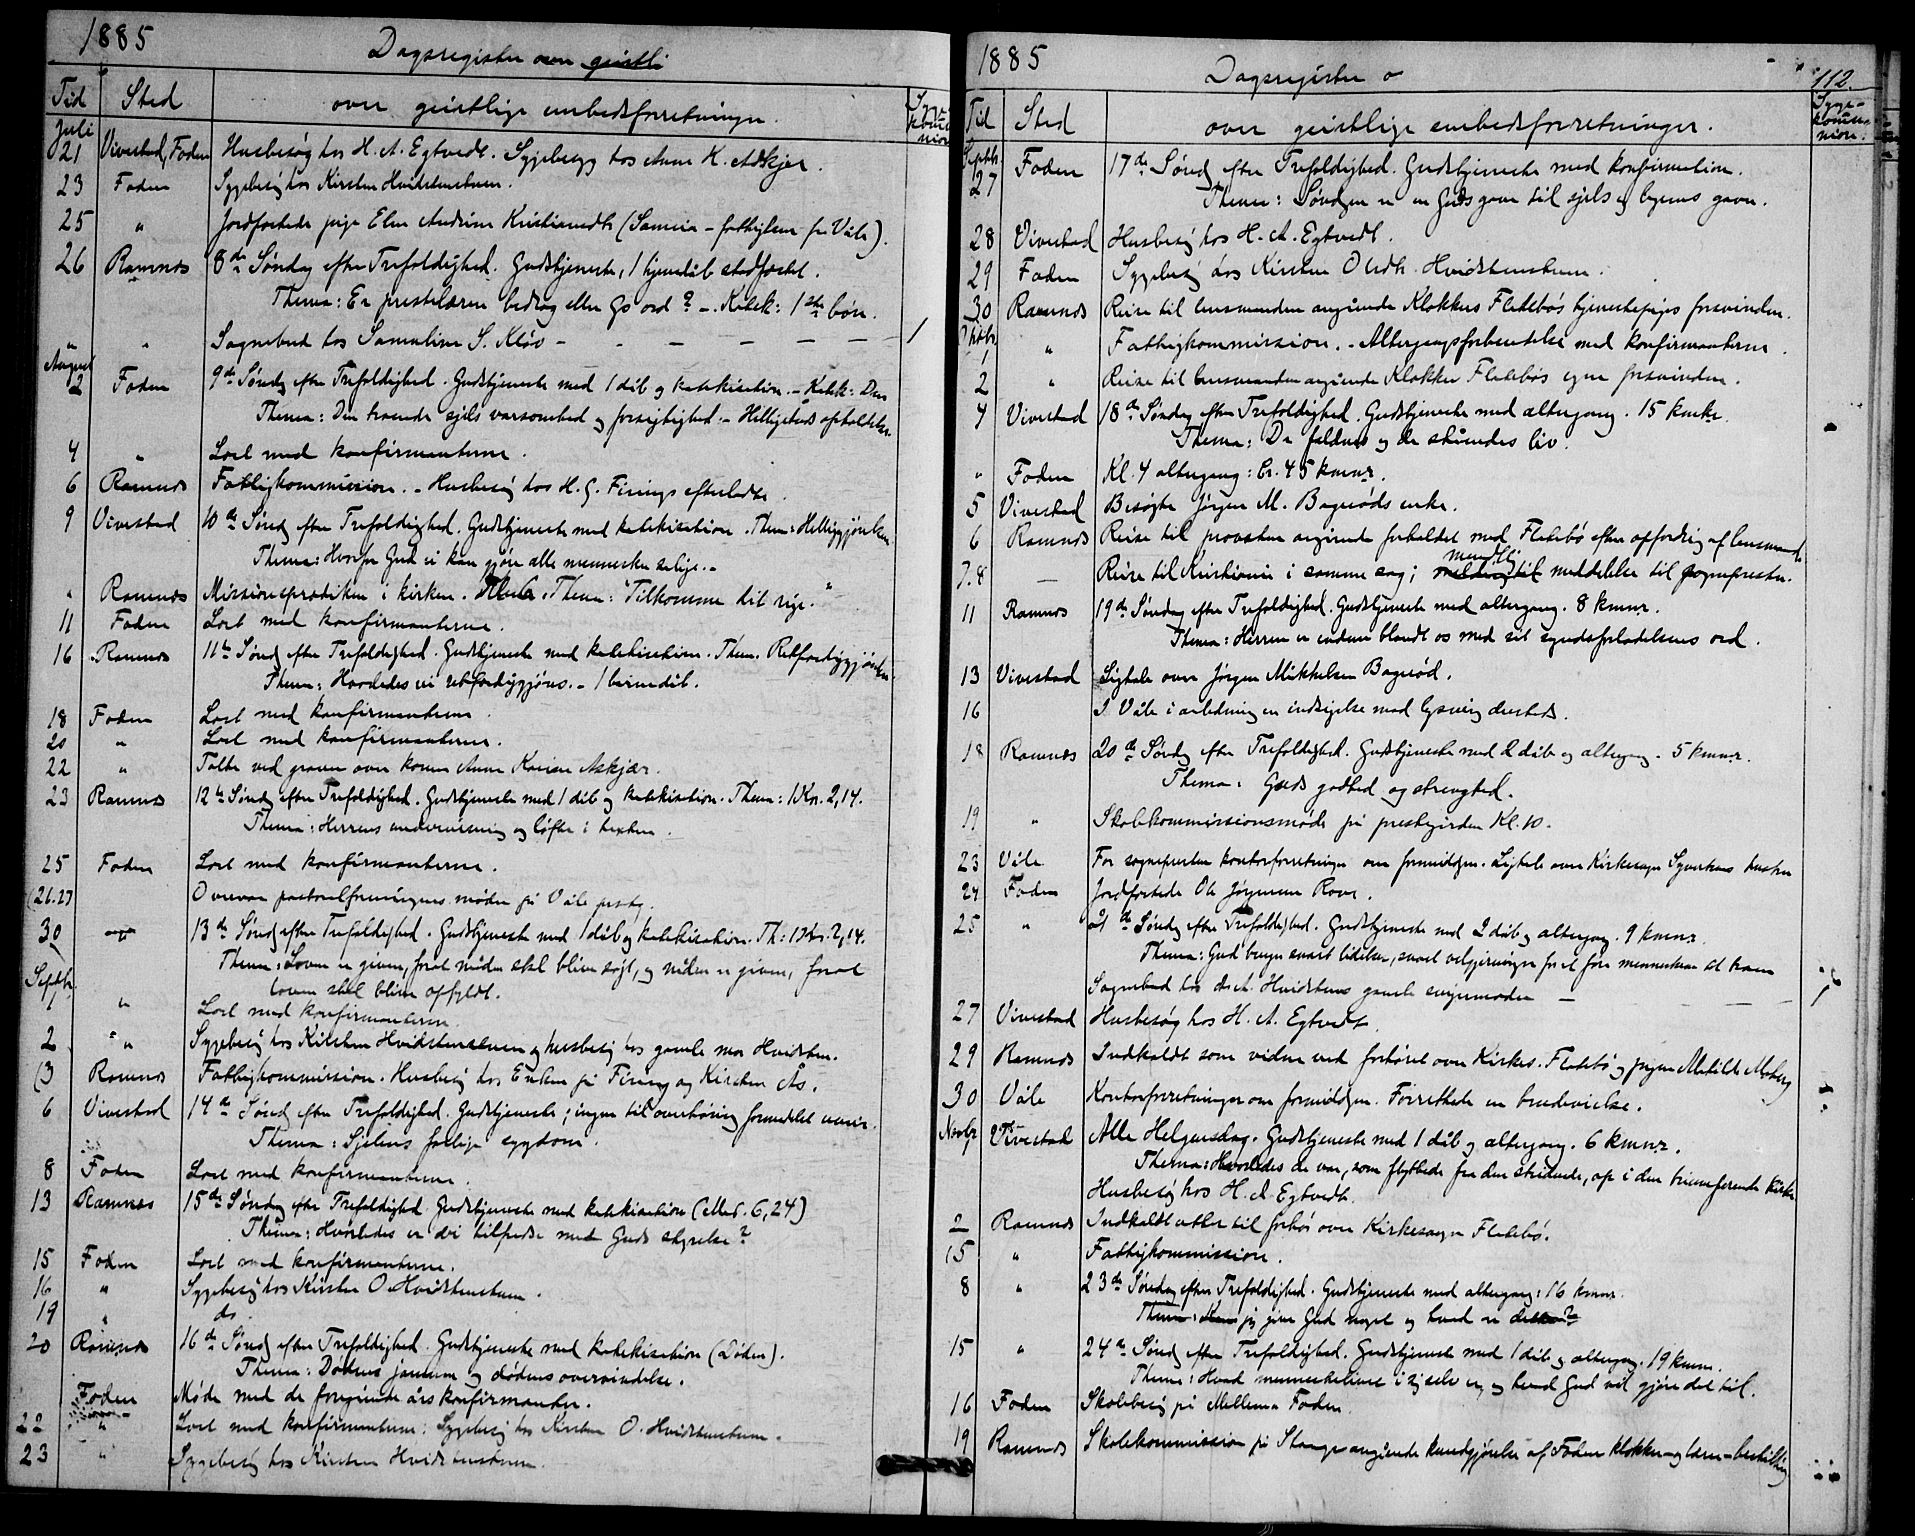 1885
Dagsregister over geistli
Tid Sted over geistlige embedsforretninger. Syge-kommunion
Juli
21 Vivestad, Foden Husbesøg hos H. A. Egtvedt. Sygebesøg hos Anne K. Askjær.
23 Foden Sygebesøg hos Kirsten Hvidstenstuen.
25 " Jordfæstede pige Elen Andrine Kristiansdtr (Sannia - fattiglem fra Våle).
26 Ramnæs 8de Søndag efter Trefoldighed. Gudstjeneste, 1 hjemdåb stadfæstet.
Thema: Er prestelæren bedrag eller Gs ord? -. Katek: 1ste bøn.
" " Sognebud hos Samuline S. Kløv - - - - - - 1
August
2 Foden 9de Søndag efter Trefoldighed. Gudstjeneste med 1 dåb og katekisation. - Katek: Den
Thema: Den troende sjels varsomhed og forsigtighed. - Helligånds opholdelse
4 " Læst med konfirmanterne.
6 Ramnæs Fattigkommission. - Husbesøg hos H. G. Firings efterladte.
9 Vivestad 10de Sønd efter Trefoldighed. Gudstjeneste med katekisation. Them: Helliggjørelsen
Thema: Hvorfor Gud ei kan gjøre alle mennesker salige. -
" Ramnæs Missionsprædiken i kirken. Them: "Tilkomme dit rige."
11 Foden Læst med konfirmanterne.
16 Ramnæs 11te Sønd efter Trefoldighed. Gudstjeneste med katekisation. Them. Retfærdiggjørelsen.
Thema: Hvorledes vi retfærdiggjøres. - 1 barnedåb.
18 Foden Læst med konfirmanterne.
20 " Læst med konfirmanterne.
22 " Talte ved graven over konen Anne Karine Askjær.
23 Ramnæs 12te Sønd efter Trefoldighed. Gudstjeneste med 1 dåb og katekisation. Them: 1 Kor. 2,14.
Thema: Herrens undervisning og løfte i texten.
25 Foden Læst med konfirmanterne.
(26.27 Overvar pastoralforeningens møder på Våle prstg.
30 " 13de Sønd efter Trefoldighed. Gudstjeneste med 1 dåb og katekisation. Th: 1 Kor. 2,14.
Thema: Loven er given, forat nåden skal blive søgt, og nåden er given, forat
loven skal blive opfyldt.
Septbr.
1 " Læst med konfirmanterne.
2 " Sygebesøg hos Kirsten Hvidstenstuen og husbesøg hos gamle mor Hvidsten.
(3 Ramnæs Fattigkommission. Husbesøg hos Enken på Firing og Kirsten Ås.
6 Vivestad 14de Sønd efter Trefoldighed. Gudstjeneste; ingen til overhøring formedelst uveir.
Thema: Sjelens farlige sygdom.
8 Foden Læst med konfirmanterne.
13 Ramnæs 15de Søndag efter Trefoldighed. Gudstjeneste med katekisation (Matt. 6,24)
Thema: Hvorledes er vi tilfredse med Guds styrelse?
15 Foden Læst med konfirmanterne.
16 " Sygebesøg hos Kirsten O. Hvidstenstuen.
19 " do.
20 Ramnæs 16de Sønd efter Trefoldighed. Gudstjeneste med katekisation (Døden).
Thema: Dødens jammer og dødens overvindelse.
Foden Møde med de foregående års konfirmanter.
22 " Læst med konfirmanterne. Sygebesøg hos Kirsten O. Hvidstenstuen.
23 " Sygebesøg hos Kirsten Hvidstenstuen.
1885
Dagsregister o
112.
Tid Sted over geistlige embedsforretninger. Syge-kommunion.
Septbr.
27 Foden 17de Sønd efter Trefoldighed. Gudstjeneste med konfirmation.
Thema: Søndagen er en Guds gave til sjels og legems gavn.
28 Vivestad Husbesøg hos H. A. Egtvedt.
29 Foden Sygebesøg hos Kirsten Olsdtr. Hvidstenstuen.
30 Ramnæs Reise til lensmanden angående Klokker Flatebøs tjenestepiges forsvinden.
Oktbr
1 " Fattigkommission. - Altergangsforberedelse med konfirmanterne.
2 " Reise til lensmanden angående Klokker Flatebøs egen forsvinden.
4 Vivestad 18de Søndag efter Trefoldighed. Gudstjeneste med altergang. 15 kmktr.
Thema: De faldnes og de ståendes liv.
" Foden Kl. 4 altergang: Ca. 45 kmnr.
5 Vivestad Besøgte Jørgen M. Bagerøds enke.
6 Ramnæs Reise til provsten angående forholdet med Flatebø efter opfordring af lensmand
7.8 — Reise til Kristiania i samme sag; melding til mundtlig meddelelse til sognepresten.
11 Ramnæs 19de Søndag efter Trefoldighed. Gudstjeneste med altergang. 8 kmnr.
Thema: Herren er endnu blandt os med sit syndsforladelsens ord.
13 Vivestad Ligtale over Jørgen Mikkelsen Bagerød.
16 I Våle i anledning en indsigelse mod lysning dersteds.
18 Ramnæs 20de Sønd efter Trefoldighed. Gudstjeneste med 2 dåb og altergang. 5 kmnr.
Thema: Guds godhed og strenghed.
19 " Skolekommissionsmøde på prestegården Kl. 10.
23 Våle For sognepresten kontorforretninger om formiddagen. Ligtale over Kirkesanger Syvertsens hustru
24 Foden Jordfæstede Ole Jørgensen Rove.
25 " 21de Sønd efter Trefoldighed. Gudstjeneste med 2 dåb og altergang. 9 kmnr.
Thema: Gud bruger snart lidelser, snart velgjerninger for at føre menneskene til troen
Sognebud hos A. Hvidstens gamle svigermoder — — — — 1
27 Vivestad Husbesøg hos H. A. Egtvedt.
29 Ramnæs Indkaldt som vidne ved forhøret over Kirkes. Flatebø og pigen Matilde Moberg
30 Våle Kontorforretninger om formiddagen. Forrettede en brudevielse.
Novbr 1 Vivestad Alle Helgensdag. Gudstjeneste med 1 dåb og altergang. 6 kmnr.
Thema: Hvorledes de var, som flyttede fra den stridende, op i den triumferende kirke
Husbesøg hos H. A. Egtvedt.
2 Ramnæs Indkaldt atter til forhør over Kirkesanger Flatebø.
(5 " Fattigkommission.
8 " 23de Søndag efter Trefoldighed. Gudstjeneste med altergang: 16 kmnr.
Thema: Kan jeg give Gud noget og hvad er dette?
15 " 24de Sønd efter Trefoldighed. Gudstjeneste med 1 dåb og altergang. 19 kmnr.
Thema: Hvad menneskelivet i sig selv er, og hvad Gud vil gjøre det til.
16 Foden Skolebesøg på Mellem Foden.
19 Ramnæs Skolekommission på Stange angående kundgjørelse af Foden klokker- og lærer-bestilling